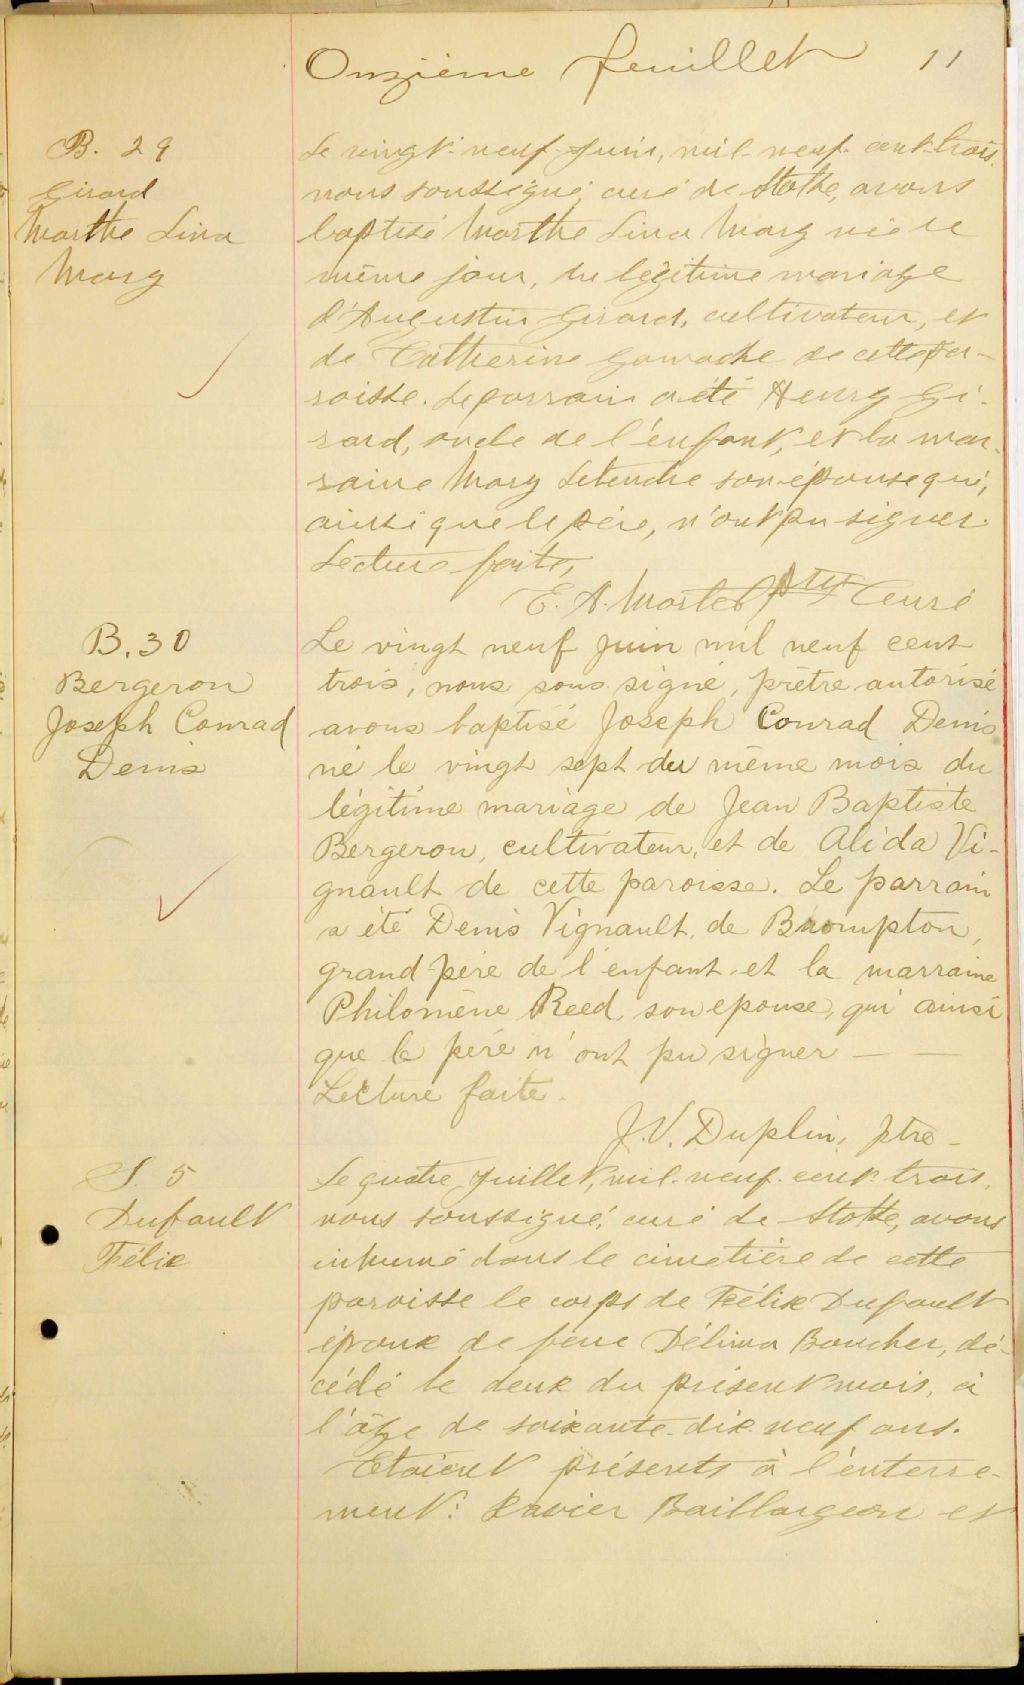 Onzième feuillet 11
B. 29
Girard
Marthe Lina
Mary
Le vingt-neuf Juin, mil-neuf-cent-trois,
nous soussigné, curé de Stoke, avons
baptisé Marthe Lina Mary née le
même jour, du légitime mariage
d'Augustin Girard, cultivateur, et
de Catherine Gamache de cette pa-
roisse. Le parrain a été Henry Gi-
rard, oncle de l'enfant, et la mar-
raine Mary Letendre son épouse qui,
ainsi que le père, n'ont pu signer.
Lecture faite,
E. A. Martel Ptre Curé
B. 30
Bergeron
Joseph Conrad
Denis
Le vingt neuf juin mil neuf cent
trois, nous sous signé, prêtre autorisé
avons baptisé Joseph Conrad Denis
né le vingt sept du même mois du
légitime mariage de Jean Baptiste
Bergeron, cultivateur, et de Alida Vi-
gnault de cette paroisse. Le parrain
a été Denis Vignault, de Brompton,
grand-père de l'enfant et la marraine
Philomène Reed, son epouse, qui ainsi
que le père n'ont pu signer — —
Lecture faite.
J. V. Duplin, ptre -
S. 5
Dufault
Félix
Le quatre Juillet, mil-neuf-cent-trois,
nous soussigné, curé de Stoke, avons
inhumé dans le cimetière de cette
paroisse le corps de Félix Dufault
époux de feue Délima Boucher, dé-
cédé le deux du présent mois, à
l'âge de soixante-dix-neuf ans.
Etaient présents à l'enterre-
ment: Xavier Baillargeon et